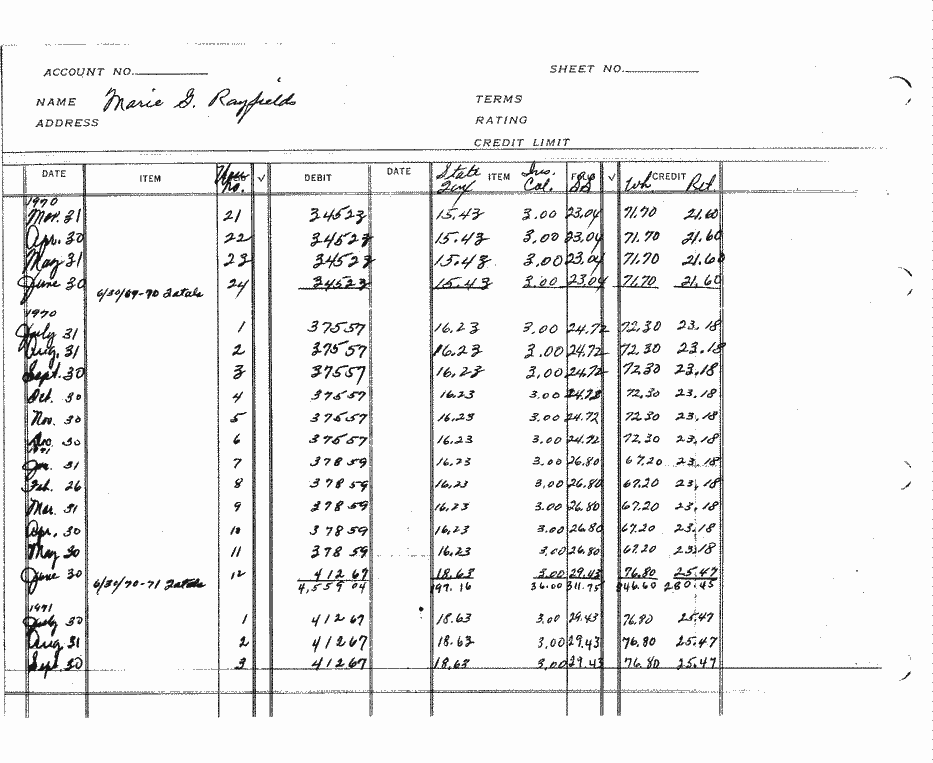 ACCOUNT NO. SHEET NO.
NAME Marie G. Rayfields TERMS
ADDRESS RATING
CREDIT LIMIT
DATE ITEM No. √ DEBIT DATE State Tax ITEM Ins. Col. √ Wh CREDIT Ret
1970
Mar. 31 21 345 23 15.43 3.00 23.04 71.70 21.60
Apr. 30 22 345 23 15.43 3.00 23.04 71.70 21.60
May 31 23 345 23 15.43 3.00 23.04 71.70 21.60
June 30 6/30/69-70 Totals 24 345 23 15.43 3.00 23.04 71.70 21.60
1970
July 31 1 375 57 16.23 3.00 24.72 72.30 23.18
Aug. 31 2 375 57 16.23 3.00 24.72 72.30 23.18
Sept. 30 3 375 57 16.23 3.00 24.72 72.30 23.18
Oct. 30 4 375 57 16.23 3.00 24.72 72.30 23.18
Nov. 30 5 375 57 16.23 3.00 24.72 72.30 23.18
Dec. 30 6 375 57 16.23 3.00 24.72 72.30 23.18
1971
Jan. 31 7 378 59 16.23 3.00 26.80 67.20 23.18
Feb. 26 8 378 59 16.23 3.00 26.80 67.20 23.18
Mar. 31 9 378 59 16.23 3.00 26.80 67.20 23.18
Apr. 30 10 378 59 16.23 3.00 26.80 67.20 23.18
May 30 11 378 59 16.23 3.00 26.80 67.20 23.18
June 30 12 412 67 18.63 3.00 29.43 76.80 25.47
6/30/70-71 Totals 4,559 04 197.16 36.00 311.75 846.60 280.45
1971
July 30 1 412 67 18.63 3.00 29.43 76.80 25.47
Aug 31 2 412 67 18.63 3.00 29.43 76.80 25.47
Sept. 30 3 412 67 18.63 3.00 29.43 76.80 25.47